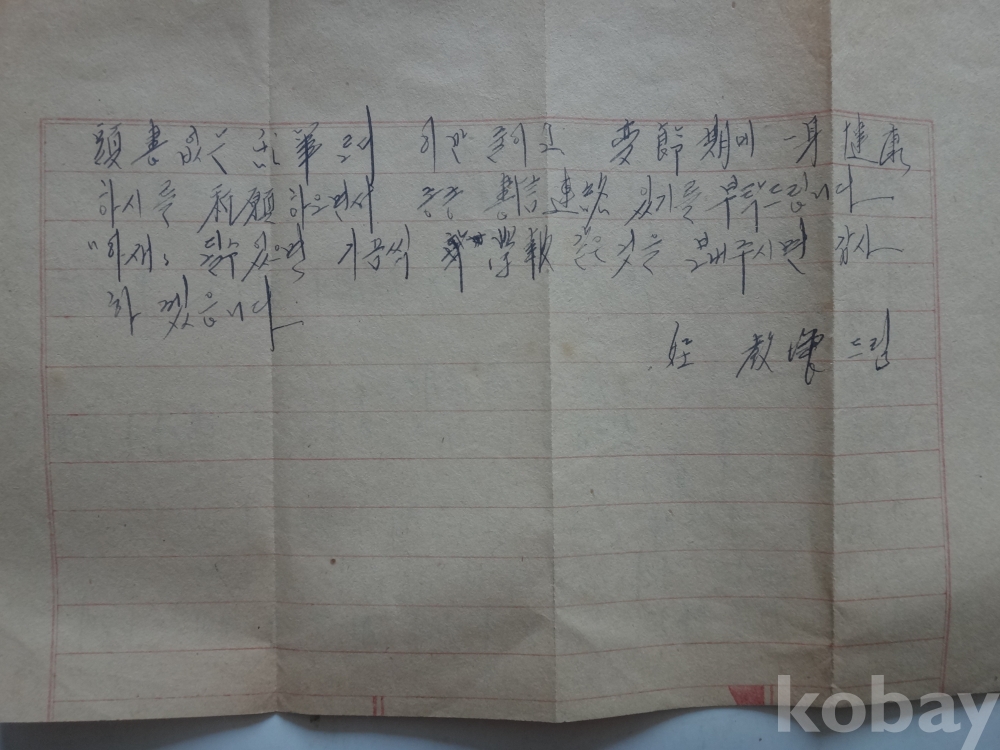 頭書 없은 亂筆로서 이만 줄이고 変節期에 一身 健康
하시를 祈願하으면서 종종 書信連絡 있기를 부탁드립니다
될수 있으면 가급적 學報 같은 것을 보내주시면 감사
하겠읍니다
敎 드림
kobay